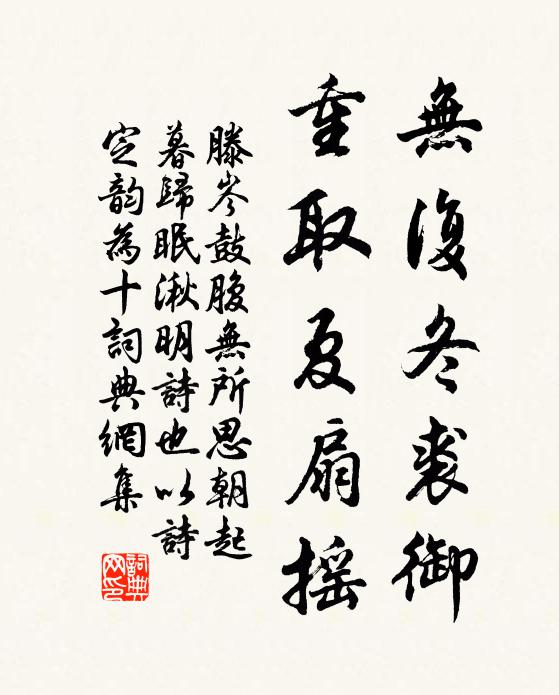 無復冬裘御
重取夏扇摇
滕岑鼓腹無所思朝起
暮歸眠湫明詩也以詩
定韵為十詞典網集
詞典网印